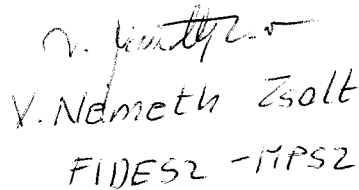 V. Németh Zsolt
FIDESZ - MPSZ